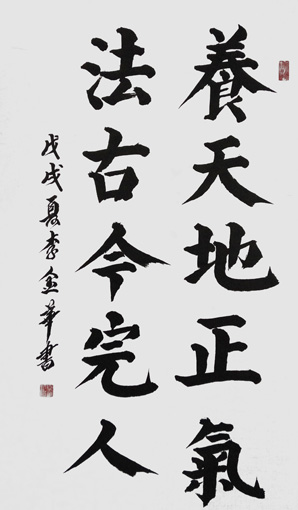 養天地正氣
法古今完人
戊戌夏李金華書